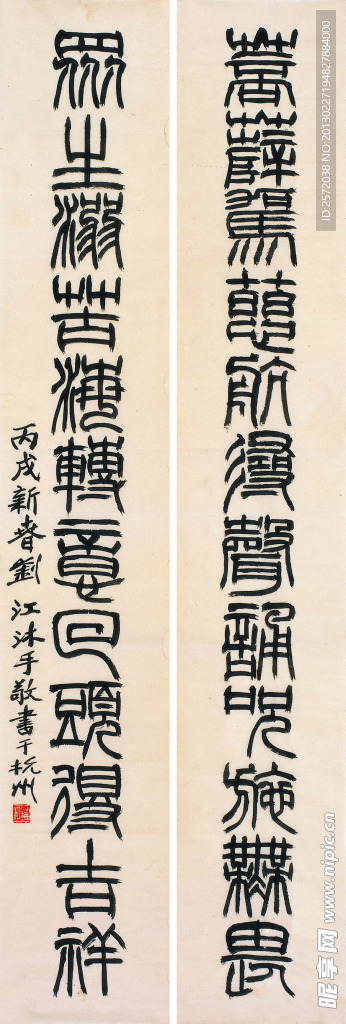 菩薩駕慈航尋聲誦咒施無畏
眾生溺苦海轉意回頭得吉祥
丙戌新春劉江沐手敬書于杭州
ID:2572038 NO:20130227194827884000
昵享网 www.nipic.cn